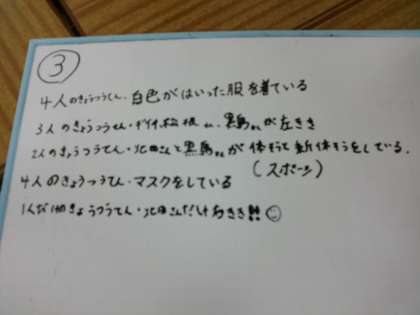 ③
4人のきょうつうてん・白色がはいった服を着ている
3人のきょうつうてん・黒鳥さんが左きき
2人のきょうつうてん・北田さんと黒鳥さんが体そうと新体そうをしている.
(スポーツ)
4人のきょうつうてん・マスクをしている
1人だけのきょうつうてん・北田さんだけ右きき!!